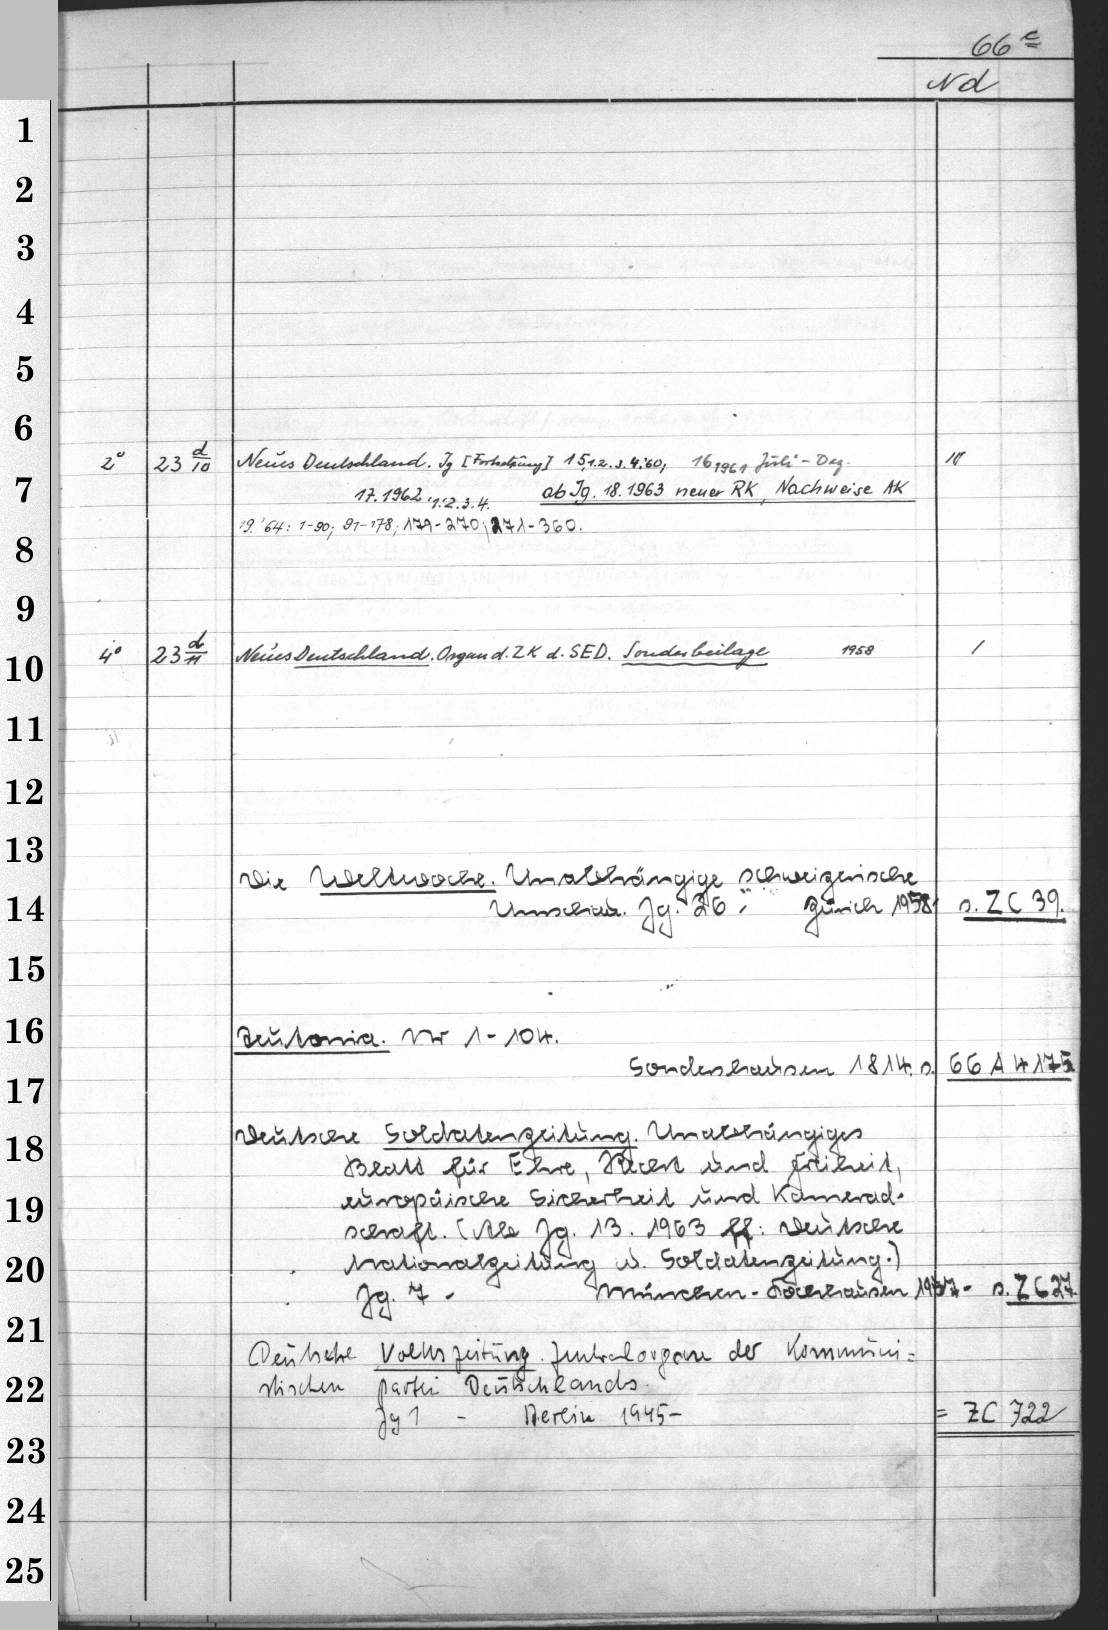 66 e
Nd
1
2
3
4
5
6
2° 23 d/10 Neues Deutschland. Jg [Fortsetzung] 15,1.2.3.4.'60, 16 1961 Juli - Dez.
7
17.1962,1.2.3.4. ab Jg. 18.1963 neuer RK, Nachweise AK
19.'64: 1-90; 91-178; 179-270; 271-360.
8
9
4° 23 d/11 Neues Deutschland. Organ d. ZK d. SED. Sonderbeilage 1958 1
10
11
12
13
Die Weltwoche. Unabhängige schweizerische
14 Umschau. Jg. 26 Zürich 1958 s. ZC 39.
15
16 Teutonia. Nr 1-104.
Sondershausen 1814. s. 66 A 4175
17
18 Deutsche Soldatenzeitung. Unabhängiges
Blatt für Ehre, Recht und Freiheit,
19 europäische Sicherheit und Kamerad-
schaft. (Ab Jg. 13. 1963 ff: Deutsche
20 Nationalzeitung u. Soldatenzeitung.)
Jg. 7 - München-Lochhausen 1957- s. ZC 27
21 Deutsche Volkszeitung. Zentralorgan der Kommuni=
22 stischen Partei Deutschlands.
Jg 1 - Berlin 1945- = ZC 722
23
24
25